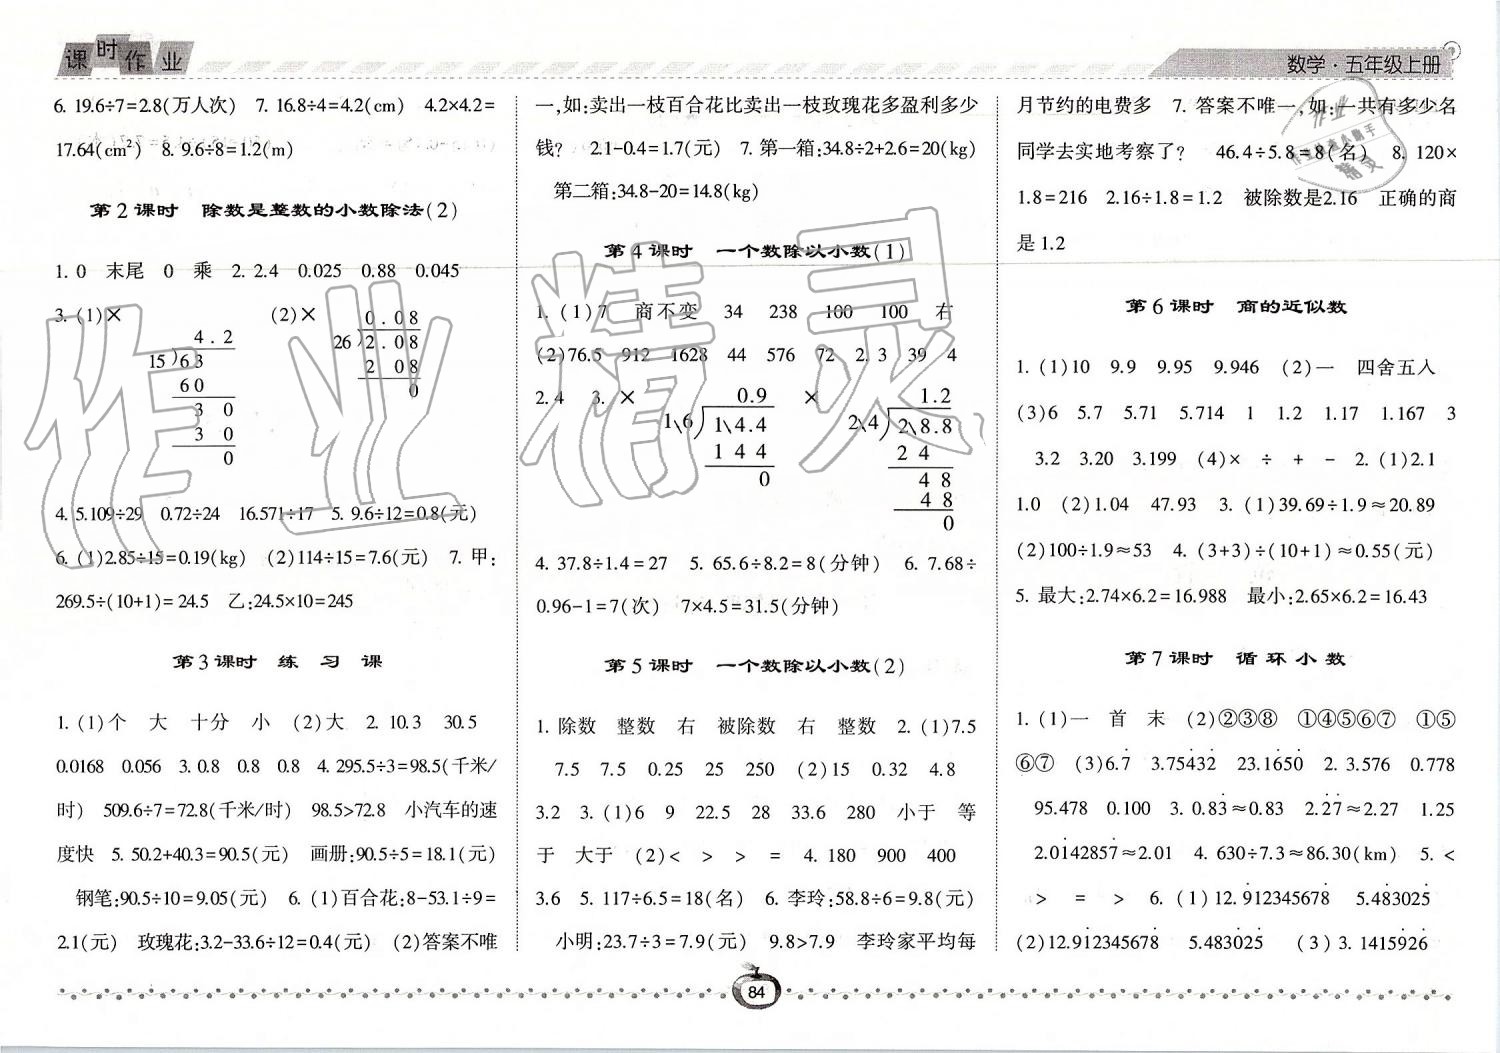 课时作业
数学·五年级上册
6. 19.6÷7=2.8(万人次) 7. 16.8÷4=4.2(cm) 4.2×4.2=
17.64(cm²) 8. 9.6÷8=1.2(m)
第2课时 除数是整数的小数除法(2)
1. 0 末尾 0 乘 2. 2.4 0.025 0.88 0.045
3. (1)× (2)×
4.2
15)63
60
3 0
3 0
0
0.08
26)2.08
2 08
0
4. 5.109÷29 0.72÷24 16.571÷17 5. 9.6÷12=0.8(元)
6. (1)2.85÷15=0.19(kg) (2)114÷15=7.6(元) 7. 甲:
269.5÷(10+1)=24.5 乙:24.5×10=245
第3课时 练习课
1. (1)个 大 十分 小 (2)大 2. 10.3 30.5
0.0168 0.056 3. 0.8 0.8 0.8 4. 295.5÷3=98.5(千米/
时) 509.6÷7=72.8(千米/时) 98.5>72.8 小汽车的速
度快 5. 50.2+40.3=90.5(元) 画册:90.5÷5=18.1(元)
钢笔:90.5÷10=9.05(元) 6. (1)百合花:8-53.1÷9=
2.1(元) 玫瑰花:3.2-33.6÷12=0.4(元) (2)答案不唯
一,如:卖出一枝百合花比卖出一枝玫瑰花多盈利多少
钱? 2.1-0.4=1.7(元) 7. 第一箱:34.8÷2+2.6=20(kg)
第二箱:34.8-20=14.8(kg)
第4课时 一个数除以小数(1)
1. (1)7 商不变 34 238 100 100 右
(2)76.5 912 1628 44 576 72 2. 3 39 4
2.4 3. × ×
0.9
1\6)1\4.4
1 4 4
0
1.2
2\4)2\8.8
2 4
4 8
4 8
0
4. 37.8÷1.4=27 5. 65.6÷8.2=8(分钟) 6. 7.68÷
0.96-1=7(次) 7×4.5=31.5(分钟)
第5课时 一个数除以小数(2)
1. 除数 整数 右 被除数 右 整数 2. (1)7.5
7.5 7.5 0.25 25 250 (2)15 0.32 4.8
3.2 3. (1)6 9 22.5 28 33.6 280 小于 等
于 大于 (2)< > > = 4. 180 900 400
3.6 5. 117÷6.5=18(名) 6. 李玲:58.8÷6=9.8(元)
小明:23.7÷3=7.9(元) 9.8>7.9 李玲家平均每
月节约的电费多 7. 答案不唯一,如:一共有多少名
同学去实地考察了? 46.4÷5.8=8(名) 8. 120×
1.8=216 2.16÷1.8=1.2 被除数是2.16 正确的商
是 1.2
第6课时 商的近似数
1. (1)10 9.9 9.95 9.946 (2)一 四舍五入
(3)6 5.7 5.71 5.714 1 1.2 1.17 1.167 3
3.2 3.20 3.199 (4)× ÷ + - 2. (1)2.1
1.0 (2)1.04 47.93 3. (1)39.69÷1.9≈20.89
(2)100÷1.9≈53 4. (3+3)÷(10+1)≈0.55(元)
5. 最大:2.74×6.2=16.988 最小:2.65×6.2=16.43
第7课时 循环小数
1. (1)一 首 末 (2)②③⑧ ①④⑤⑥⑦ ①⑤
⑥⑦ (3)6.7̇ 3.75̇432̇ 23.1̇650̇ 2. 3.576 0.778
95.478 0.100 3. 0.83̇≈0.83 2.2̇7̇≈2.27 1.25
2.0̇142857̇≈2.01 4. 630÷7.3≈86.30(km) 5. <
> = > 6. (1)12.9̇12345678̇ 5.4̇83025̇
(2)12.91̇2345678̇ 5.4830̇25̇ (3)3.1415̇926̇
84
作业精灵